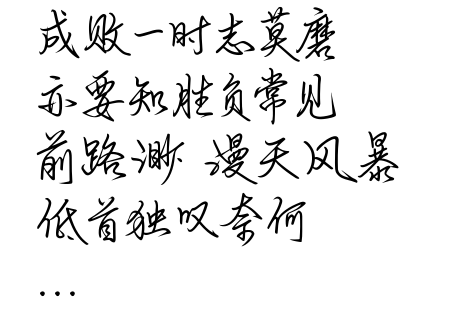 成败一时志莫磨
亦要知胜负常见
前路渺 漫天风暴
低首独叹奈何
...